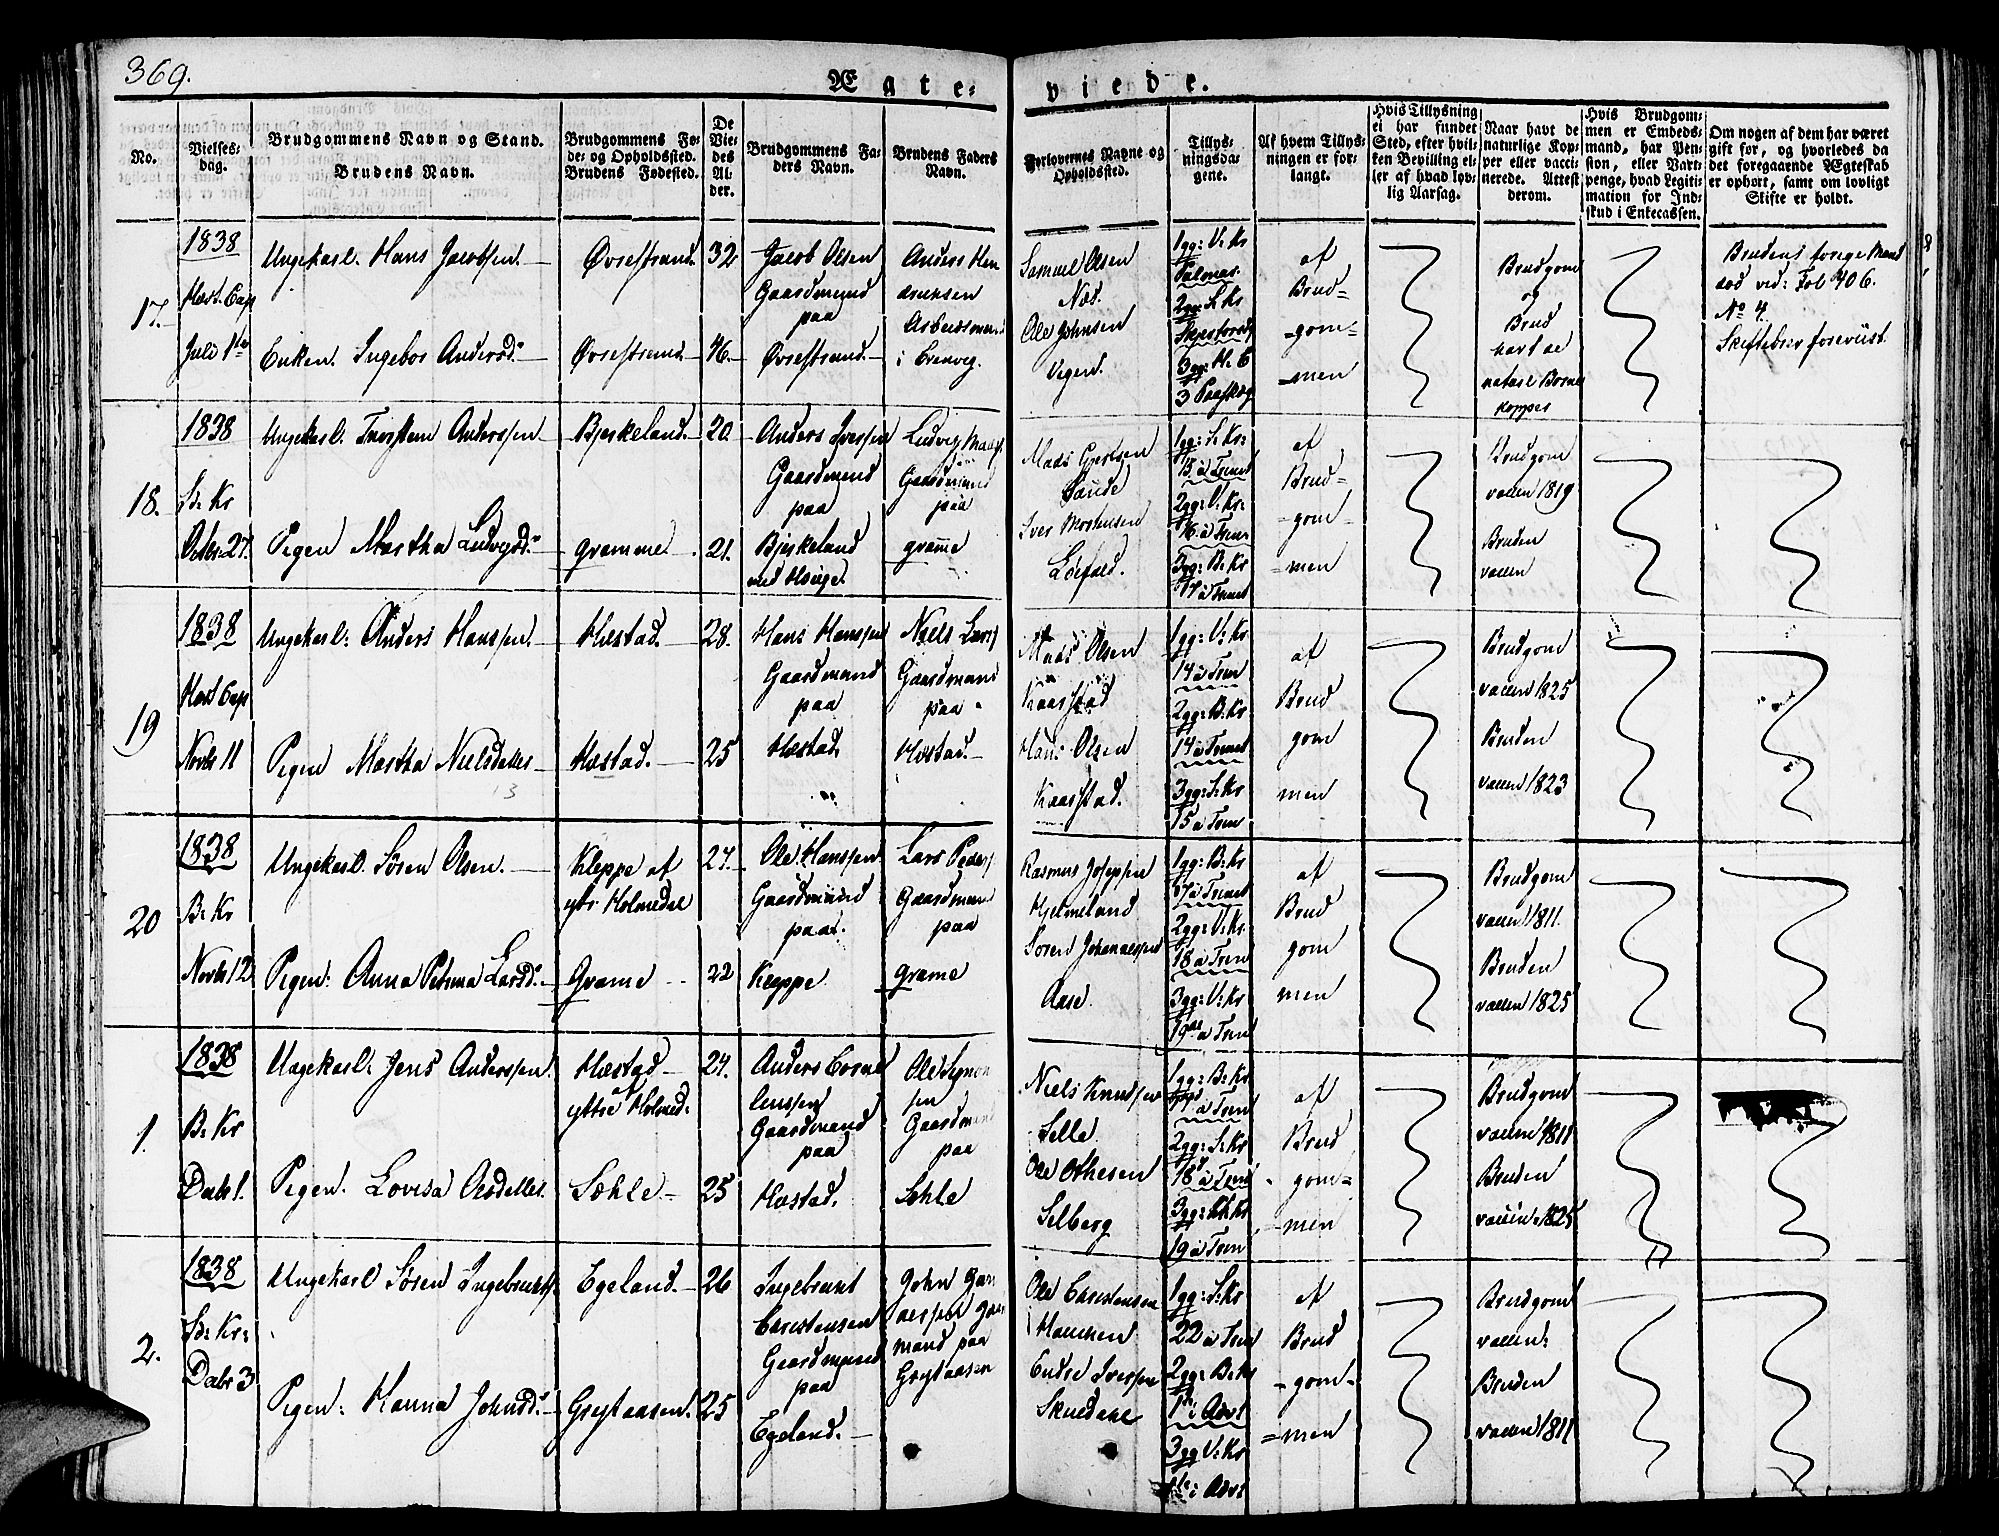 369.
Ægte-
viede.
No.
Vielses-
dag.
Brudgommens Navn og Stand.
Brudens Navn.
Brudgommens Fø-
de- og Opholdssted.
Brudens Fødested.
De
Vie-
des
Al-
der.
Brudgommens Fa-
ders Navn.
Brudens Faders
Navn.
Forlovernes Navne og
Opholdssted.
Tillys-
ningsda-
gene.
Af hvem Tillys-
ningen er for-
langt.
Hvis Tillysning
ei har fundet
Sted, efter hvil-
ken Bevilling el-
ler af hvad lov-
lig Aarsag.
Naar havt de
naturlige Kop-
per eller vacci-
nerede. Attest
derom.
Hvis Brudgom-
men er Embeds-
mand, har Pen-
sion, eller Vart-
penge, hvad Legiti-
mation for Ind-
skud i Enkecassen.
Om nogen af dem har været
gift før, og hvorledes da
det foregaaende Ægteskab
er ophørt, samt om lovligt
Skifte er holdt.
17.
1838
Juli 1ste
Ungekarl. Hans Jacobsen.
Enken. Ingebor Andersd.
Øvrestrand
Øvrestrand
32
46.
Jacob Olsen
Gaardmand
paa
Øvrestrand.
Anders Hen
Arbeidsmand
i
Samuel Olsen
Næs.
Ole Johnsen
Vegen.
1gg: V: Kr
Palmas.
2gg: S: Kr
3gg: H: C
af
Brud=
=gom=
=men
Brudgom
og
Brud
havt de
naturl Børne
kopper
Brudens forige Mand
død vid: Fol 406.
No 4.
Skiftebrev foreviist.
18.
1838
Octbr 27.
Ungekarl. Torsten Anderssen
Pigen Martha Ludvigsd.
Bjerkeland.
gramme.
20.
21.
Anders Iverssen
Gaardmand
paa
Bjerkeland
Ludvig
Gaardmand
paa
gra̅me
Mads
Sande
Iver Mortensen
Løefald.
1gg: S: Kr:
15 a Trinit
2gg: V: Kr:
16 a Trin
3gg: B: Kr
17 a Trinit
af
Brud=
=gom=
=men
Brudgom
vaccn 1819
Bruden
vaccn
19
1838
Høst Cap
Novbr 11
Ungekarl: Anders Hanssen.
Pigen Martha Nielsdatter
Høstad.
Høstad.
28.
25
Hans Hanssen
Gaardmand
paa
Høstad
Niels Lars
Gaardmand
paa
Høstad.
Mads Olsen
Kaarstad
Hans Olsen
Kaarstad.
1gg: V: Kr
14 a Trin
2gg: B: Kr
14 a Trinit
3gg: S: Kr
15 a Trin
af
Brud
gom
men
Brudgom
vaccn 1825
Bruden
vaccn 1823
20
1838
B: Kr
Novbr 12
Ungekarl. Søren Olsen.
Pigen: Anna Petrina Larsd.
Kleppe af
ytr: Holmedal
Grame
27.
22
Ole Hanssen
Gaardmand
paa
Kleppe
Lars Peders
Gaardmand
paa
grame
Rasmus Josephsen
Hjelmeland
Søren Johannessen
Aase.
1gg: B: Kr
17 a Trinit
2gg: V: Kr.
18 a Trin
3gg: V: Kr
19de a Trin
af
Brud
gom
men
Brudgom
vaccn 1811.
Bruden
vaccn 1825
1.
1838
B: Kr
Decbr 1.
Ungekarl. Jens Anderssen.
Pigen. Lovisa Olsdatter.
Høstad
ytre Holmed:
Sæhle
24.
25
Anders Corne
lenssen
Gaardmand
paa
Høstad.
Ole Symon
sen
Gaardmand
paa
Sæhle
Niels Knudsen
Selle
Ole
Selberg
1gg: B: Kr
a Trin
2gg: S: Kr
18 a Trin
3gg:
19 a Trin
af
Brud
gom=
=men
Brudgom
vaccn 1811
Bruden
vaccn: 1825
2.
1838
Decbr 3
Ungekarl Søren Ingebrethts
Pigen: Hanna Johnsd.
Egeland.
26
25
Ingebrant
Christensen
Gaardmand
paa
Egeland.
John Gun
nersen
mand paa
Ole Christensen
Endre Iversen
Skuedahl
1gg: S: Kr
22 a Trin
2gg: B: Kr
1ste i Advt
3gg V: Kr
1ste i Advt
af
Brud
=gom=
=men
Brudgom
vaccn:
Bruden
vaccn 1811